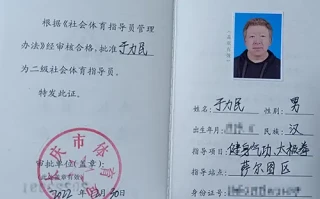 根据《社会体育指导员管理
办法》经审核合格，批准于力民
为二级社会体育指导员。
特发此证。
庆市体育
审批单位（盖章）：
2022年12月30日
姓名：于力民 性别：男
出生年月： 民族：汉
指导项目：健身气功、太极拳
指导站点：萨尔图区
身份证号：